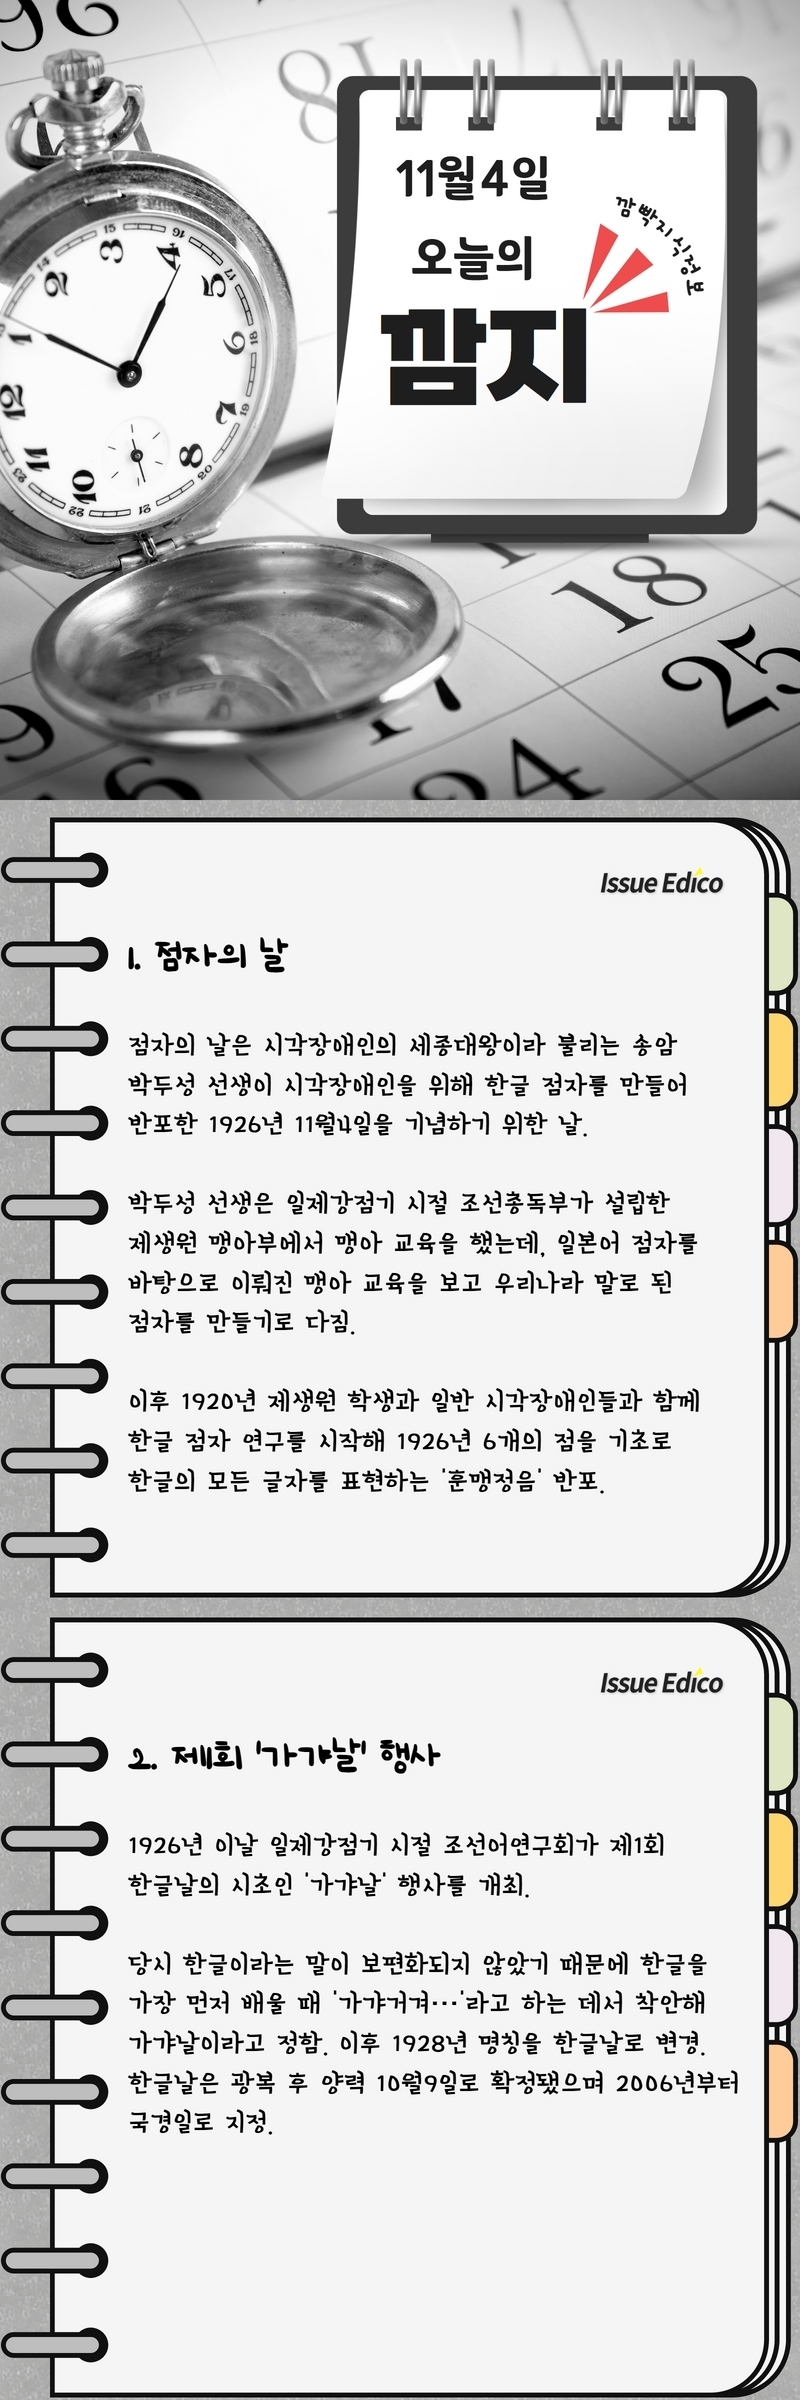 11월4일
오늘의
깜지
깜빡지식정보
Issue Edico
1. 점자의 날
점자의 날은 시각장애인의 세종대왕이라 불리는 송암
박두성 선생이 시각장애인을 위해 한글 점자를 만들어
반포한 1926년 11월4일을 기념하기 위한 날.
박두성 선생은 일제강점기 시절 조선총독부가 설립한
제생원 맹아부에서 맹아 교육을 했는데, 일본어 점자를
바탕으로 이뤄진 맹아 교육을 보고 우리나라 말로 된
점자를 만들기로 다짐.
이후 1920년 제생원 학생과 일반 시각장애인들과 함께
한글 점자 연구를 시작해 1926년 6개의 점을 기초로
한글의 모든 글자를 표현하는 '훈맹정음' 반포.
Issue Edico
2. 제1회 '가갸날' 행사
1926년 이날 일제강점기 시절 조선어연구회가 제1회
한글날의 시초인 '가갸날' 행사를 개최.
당시 한글이라는 말이 보편화되지 않았기 때문에 한글을
가장 먼저 배울 때 '가갸거겨···'라고 하는 데서 착안해
가갸날이라고 정함. 이후 1928년 명칭을 한글날로 변경.
한글날은 광복 후 양력 10월9일로 확정됐으며 2006년부터
국경일로 지정.